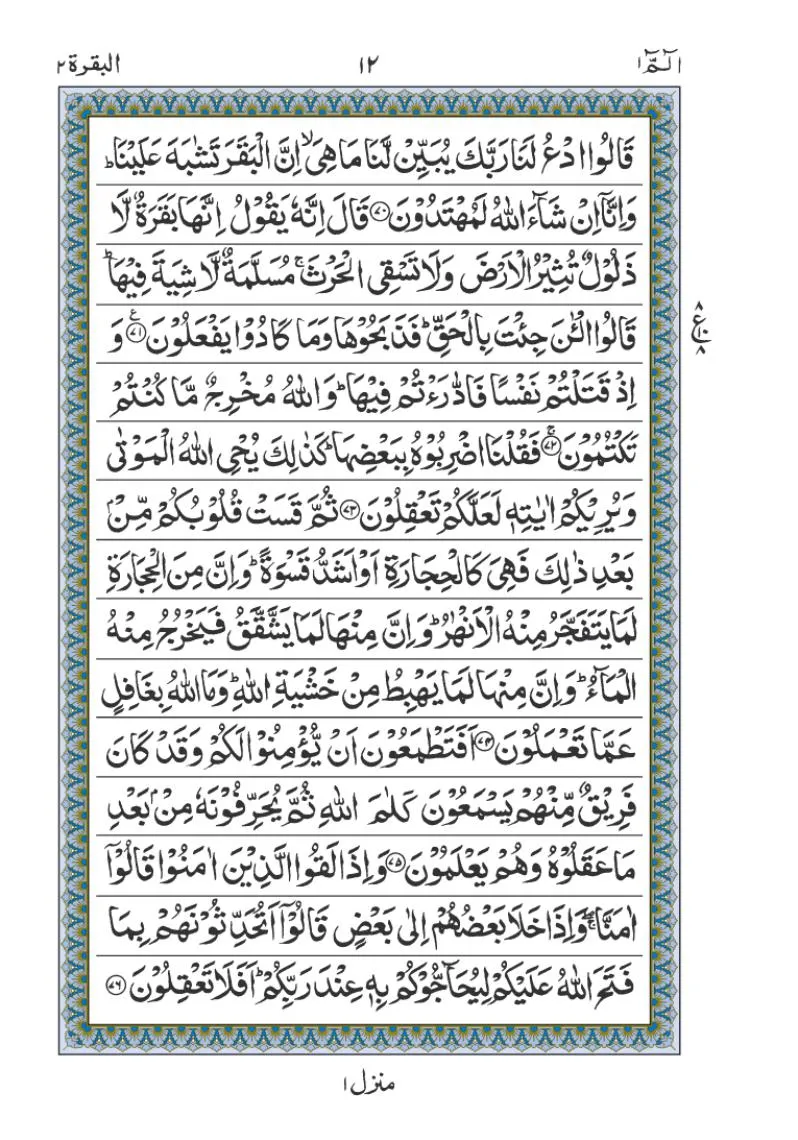 الٓمّٓ ۱ ۱۲ البقرة ۲
قَالُوا ادْعُ لَنَا رَبَّكَ يُبَيِّنْ لَّنَا مَا هِىَ ۙ اِنَّ الْبَقَرَ تَشٰبَهَ عَلَيْنَا ؕ
وَاِنَّاۤ اِنْ شَآءَ اللّٰهُ لَمُهْتَدُوْنَ ﴿۷۰﴾ قَالَ اِنَّهٗ يَقُوْلُ اِنَّهَا بَقَرَةٌ لَّا
ذَلُوْلٌ تُثِيْرُ الْاَرْضَ وَلَا تَسْقِى الْحَرْثَ ۚ مُسَلَّمَةٌ لَّا شِيَةَ فِيْهَا ؕ
قَالُوا الْـٰٔنَ جِئْتَ بِالْحَقِّ ؕ فَذَبَحُوْهَا وَمَا كَادُوْا يَفْعَلُوْنَ ﴿۷۱﴾ ع وَ
ع ۸ ۱۰ ۸
اِذْ قَتَلْتُمْ نَفْسًا فَادّٰرَءْتُمْ فِيْهَا ؕ وَاللّٰهُ مُخْرِجٌ مَّا كُنْتُمْ
تَكْتُمُوْنَ ۚ ﴿۷۲﴾ فَقُلْنَا اضْرِبُوْهُ بِبَعْضِهَا ؕ كَذٰلِكَ يُحْىِ اللّٰهُ الْمَوْتٰى
وَيُرِيْكُمْ اٰيٰتِهٖ لَعَلَّكُمْ تَعْقِلُوْنَ ﴿۷۳﴾ ثُمَّ قَسَتْ قُلُوْبُكُمْ مِّنْۢ
بَعْدِ ذٰلِكَ فَهِىَ كَالْحِجَارَةِ اَوْ اَشَدُّ قَسْوَةً ؕ وَاِنَّ مِنَ الْحِجَارَةِ
لَمَا يَتَفَجَّرُ مِنْهُ الْاَنْهٰرُ ؕ وَاِنَّ مِنْهَا لَمَا يَشَّقَّقُ فَيَخْرُجُ مِنْهُ
الْمَآءُ ؕ وَاِنَّ مِنْهَا لَمَا يَهْبِطُ مِنْ خَشْيَةِ اللّٰهِ ؕ وَمَا اللّٰهُ بِغَافِلٍ
عَمَّا تَعْمَلُوْنَ ﴿۷۴﴾ اَفَتَطْمَعُوْنَ اَنْ يُّؤْمِنُوْا لَكُمْ وَقَدْ كَانَ
فَرِيْقٌ مِّنْهُمْ يَسْمَعُوْنَ كَلٰمَ اللّٰهِ ثُمَّ يُحَرِّفُوْنَهٗ مِنْۢ بَعْدِ
مَا عَقَلُوْهُ وَهُمْ يَعْلَمُوْنَ ﴿۷۵﴾ وَاِذَا لَقُوا الَّذِيْنَ اٰمَنُوْا قَالُوْۤا
اٰمَنَّا ۖۚ وَاِذَا خَلَا بَعْضُهُمْ اِلٰى بَعْضٍ قَالُوْۤا اَتُحَدِّثُوْنَهُمْ بِمَا
فَتَحَ اللّٰهُ عَلَيْكُمْ لِيُحَآجُّوْكُمْ بِهٖ عِنْدَ رَبِّكُمْ ؕ اَفَلَا تَعْقِلُوْنَ ﴿۷۶﴾
منزل ۱